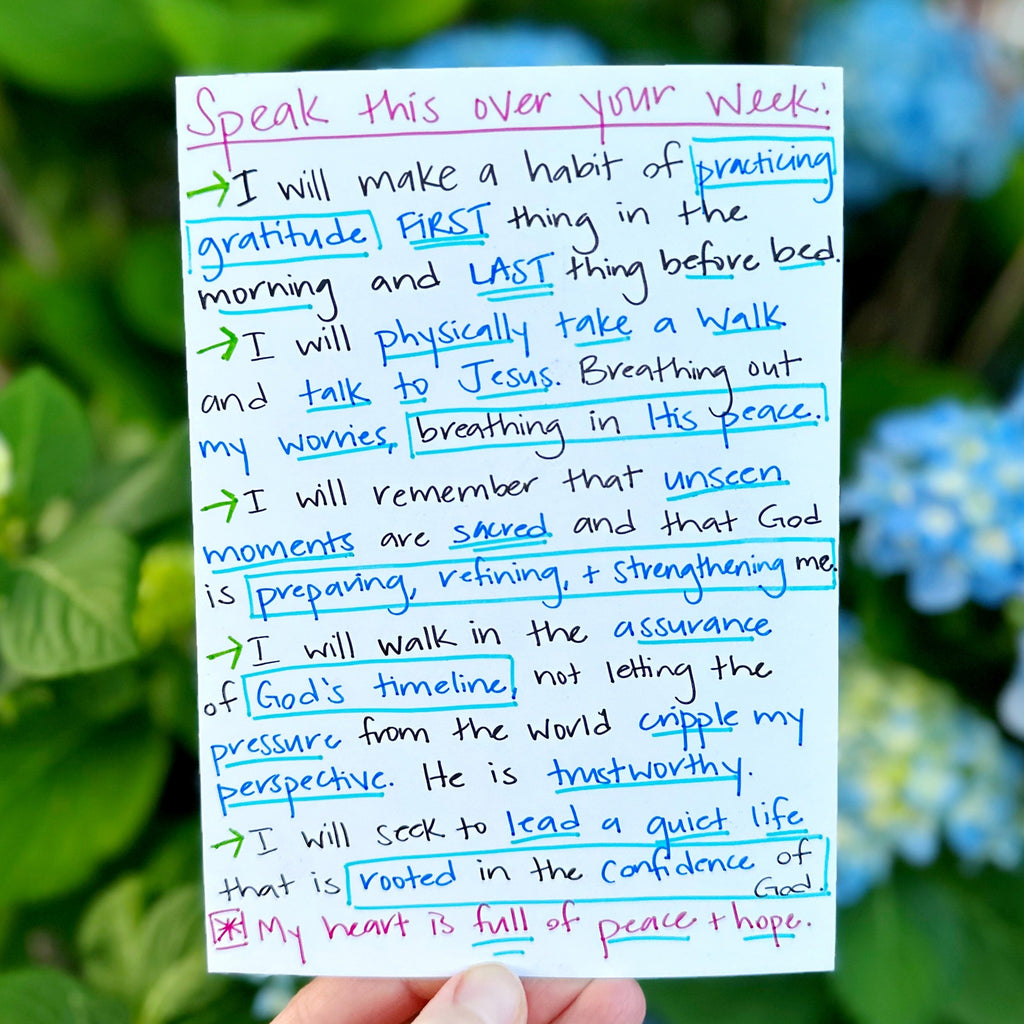 Speak this over your week:
→ I will make a habit of practicing
gratitude FIRST thing in the
morning and LAST thing before bed.
→ I will physically take a walk
and talk to Jesus. Breathing out
my worries, breathing in His peace.
→ I will remember that unseen
moments are sacred and that God
is preparing, refining, + strengthening me.
→ I will walk in the assurance
of God's timeline, not letting the
pressure from the world cripple my
perspective. He is trustworthy.
→ I will seek to lead a quiet life
that is rooted in the confidence of
God.
* My heart is full of peace + hope.